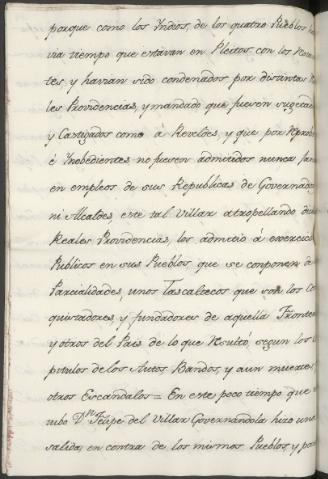 porque como los Yndios, de los quatro Pueblos ha
via tiempo que estavan en Pleitos con los
tes y havian sido condenados por distintas
les Providencias, y mandado que fuesen sugetad
y Castigados como á Reveldes, y que por
é Inobedientes no fuesen admitidos nunca
en empleos de sus Republicas de Governado
ni Alcaldes, este tal Villar atropellando
Reales Providencias, los admitio á exercici
Publicos en sus Pueblos, que se conponen de
Parcialidades, unos Tascaltecos que son los Co
quistadores, y fundadores de aquella Fronte
y otros del Pais de lo que Resultó, segun los
pitulos de los Autos Bandos, y aun muertes,
otros Escandalos = En este poco tiempo que
tubo Dn. Felipe del Villar Governandola hizo una
salida en contra de los mismos Pueblos, y